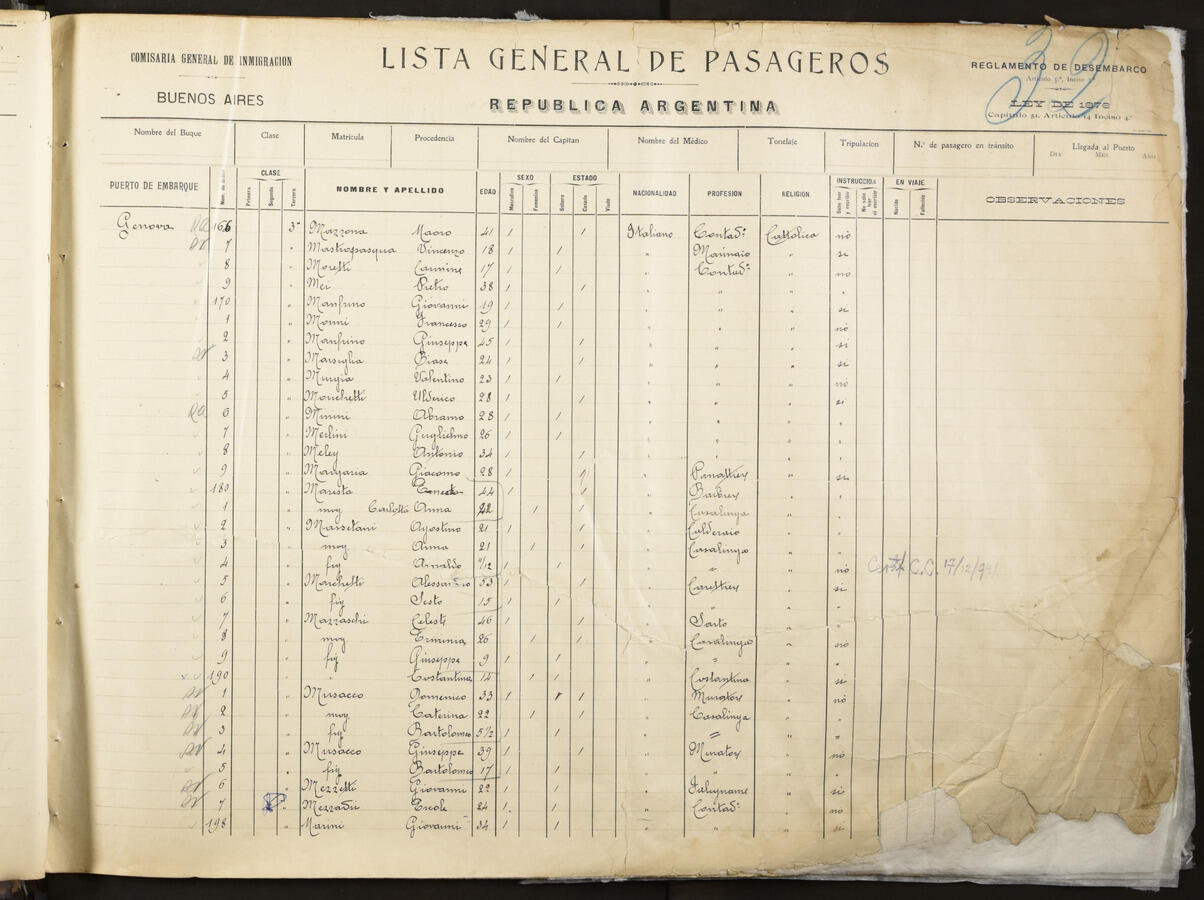 COMISARIA GENERAL DE INMIGRACIÓN
BUENOS AIRES
LISTA GENERAL DE PASAGEROS
REPUBLICA ARGENTINA
32
REGLAMENTO DE DESEMBARCO
Artículo 5º, Inciso
LEY DE 1876
Capítulo 51, Artículo 14 Inciso 4º
Nombre del Buque Clase Matrícula Procedencia Nombre del Capitan Nombre del Médico Tonelaje Tripulacion N.º de pasagero en tránsito Llegada al Puerto
DIA MES AÑO
PUERTO DE EMBARQUE Núm. de orden CLASE Primera Segunda Tercera NOMBRE Y APELLIDO EDAD SEXO Masculino Femenino ESTADO Soltero Casado Viudo NACIONALIDAD PROFESION RELIGION INSTRUCCIÓN Sabe leer y escribir No sabe leer ni escribir EN VIAJE Nacido Fallecido OBSERVACIONES
Genova 166 3ª Mazzona Mauro 41 / / Italiano Contadº Cattolica no
7 " Mastropasqua Vincenzo 18 / / " Marinaio " si
8 " Moretti Carmine 17 / / " Contadº " no
9 " Mei Pietro 38 / / " " " "
170 " Manfrino Giovanni 19 / / " " " si
1 " Monni Francesco 29 / / " " " no
2 " Manfrino Giuseppe 45 / / " " " si
3 " Marsiglia Biase 24 / / " " " si
4 " Murgia Valentino 23 / / " " " no
5 " Morichetti Ulderico 28 / / " " " si
6 " Minini Abramo 28 / / " " " "
7 " Merlini Guglielmo 26 / / " " " "
8 " Meley Antonio 34 / / " " " "
9 " Margaria Giacomo 28 / / " " si
180 " Maresta Ernesto 44 / / " Barbiere " "
1 " mog Carlotta Anna 22 / / " Casalinga " "
2 " Massetani Agostino 21 / / " Calderaio " "
3 " mog Anna 21 / / " Casalinga " "
4 " fig Arnaldo /12 / / " " " no Certif. C.C. 17/12/9
5 " Marchetti Alessandro 53 / / " " si
6 " fig Sesto 15 / / " " " "
7 " Mazzaschi Celeste 46 / / " Sarto " "
8 " mog Erminia 26 / / " Casalinga " no
9 " fig Giuseppe 9 / / " " " "
190 " " Costantina 14 / / " Costantina " si
1 " Musacco Domenico 33 / / " Muratore " no
2 " mog Caterina 22 / / " Casalinga " "
3 " fig Bartolomeo 5 1/2 / / " " " "
4 " Musacco Giuseppe 39 / / " Muratore " no
5 " fig Bartolomeo 17 / / " " " "
6 " Mezzetti Giovanni 22 / / " Falegname " si
7 " Mezzadri Ercole 24 / / " Contadº " no
198 " Marini Giovanni 34 / / " " " si